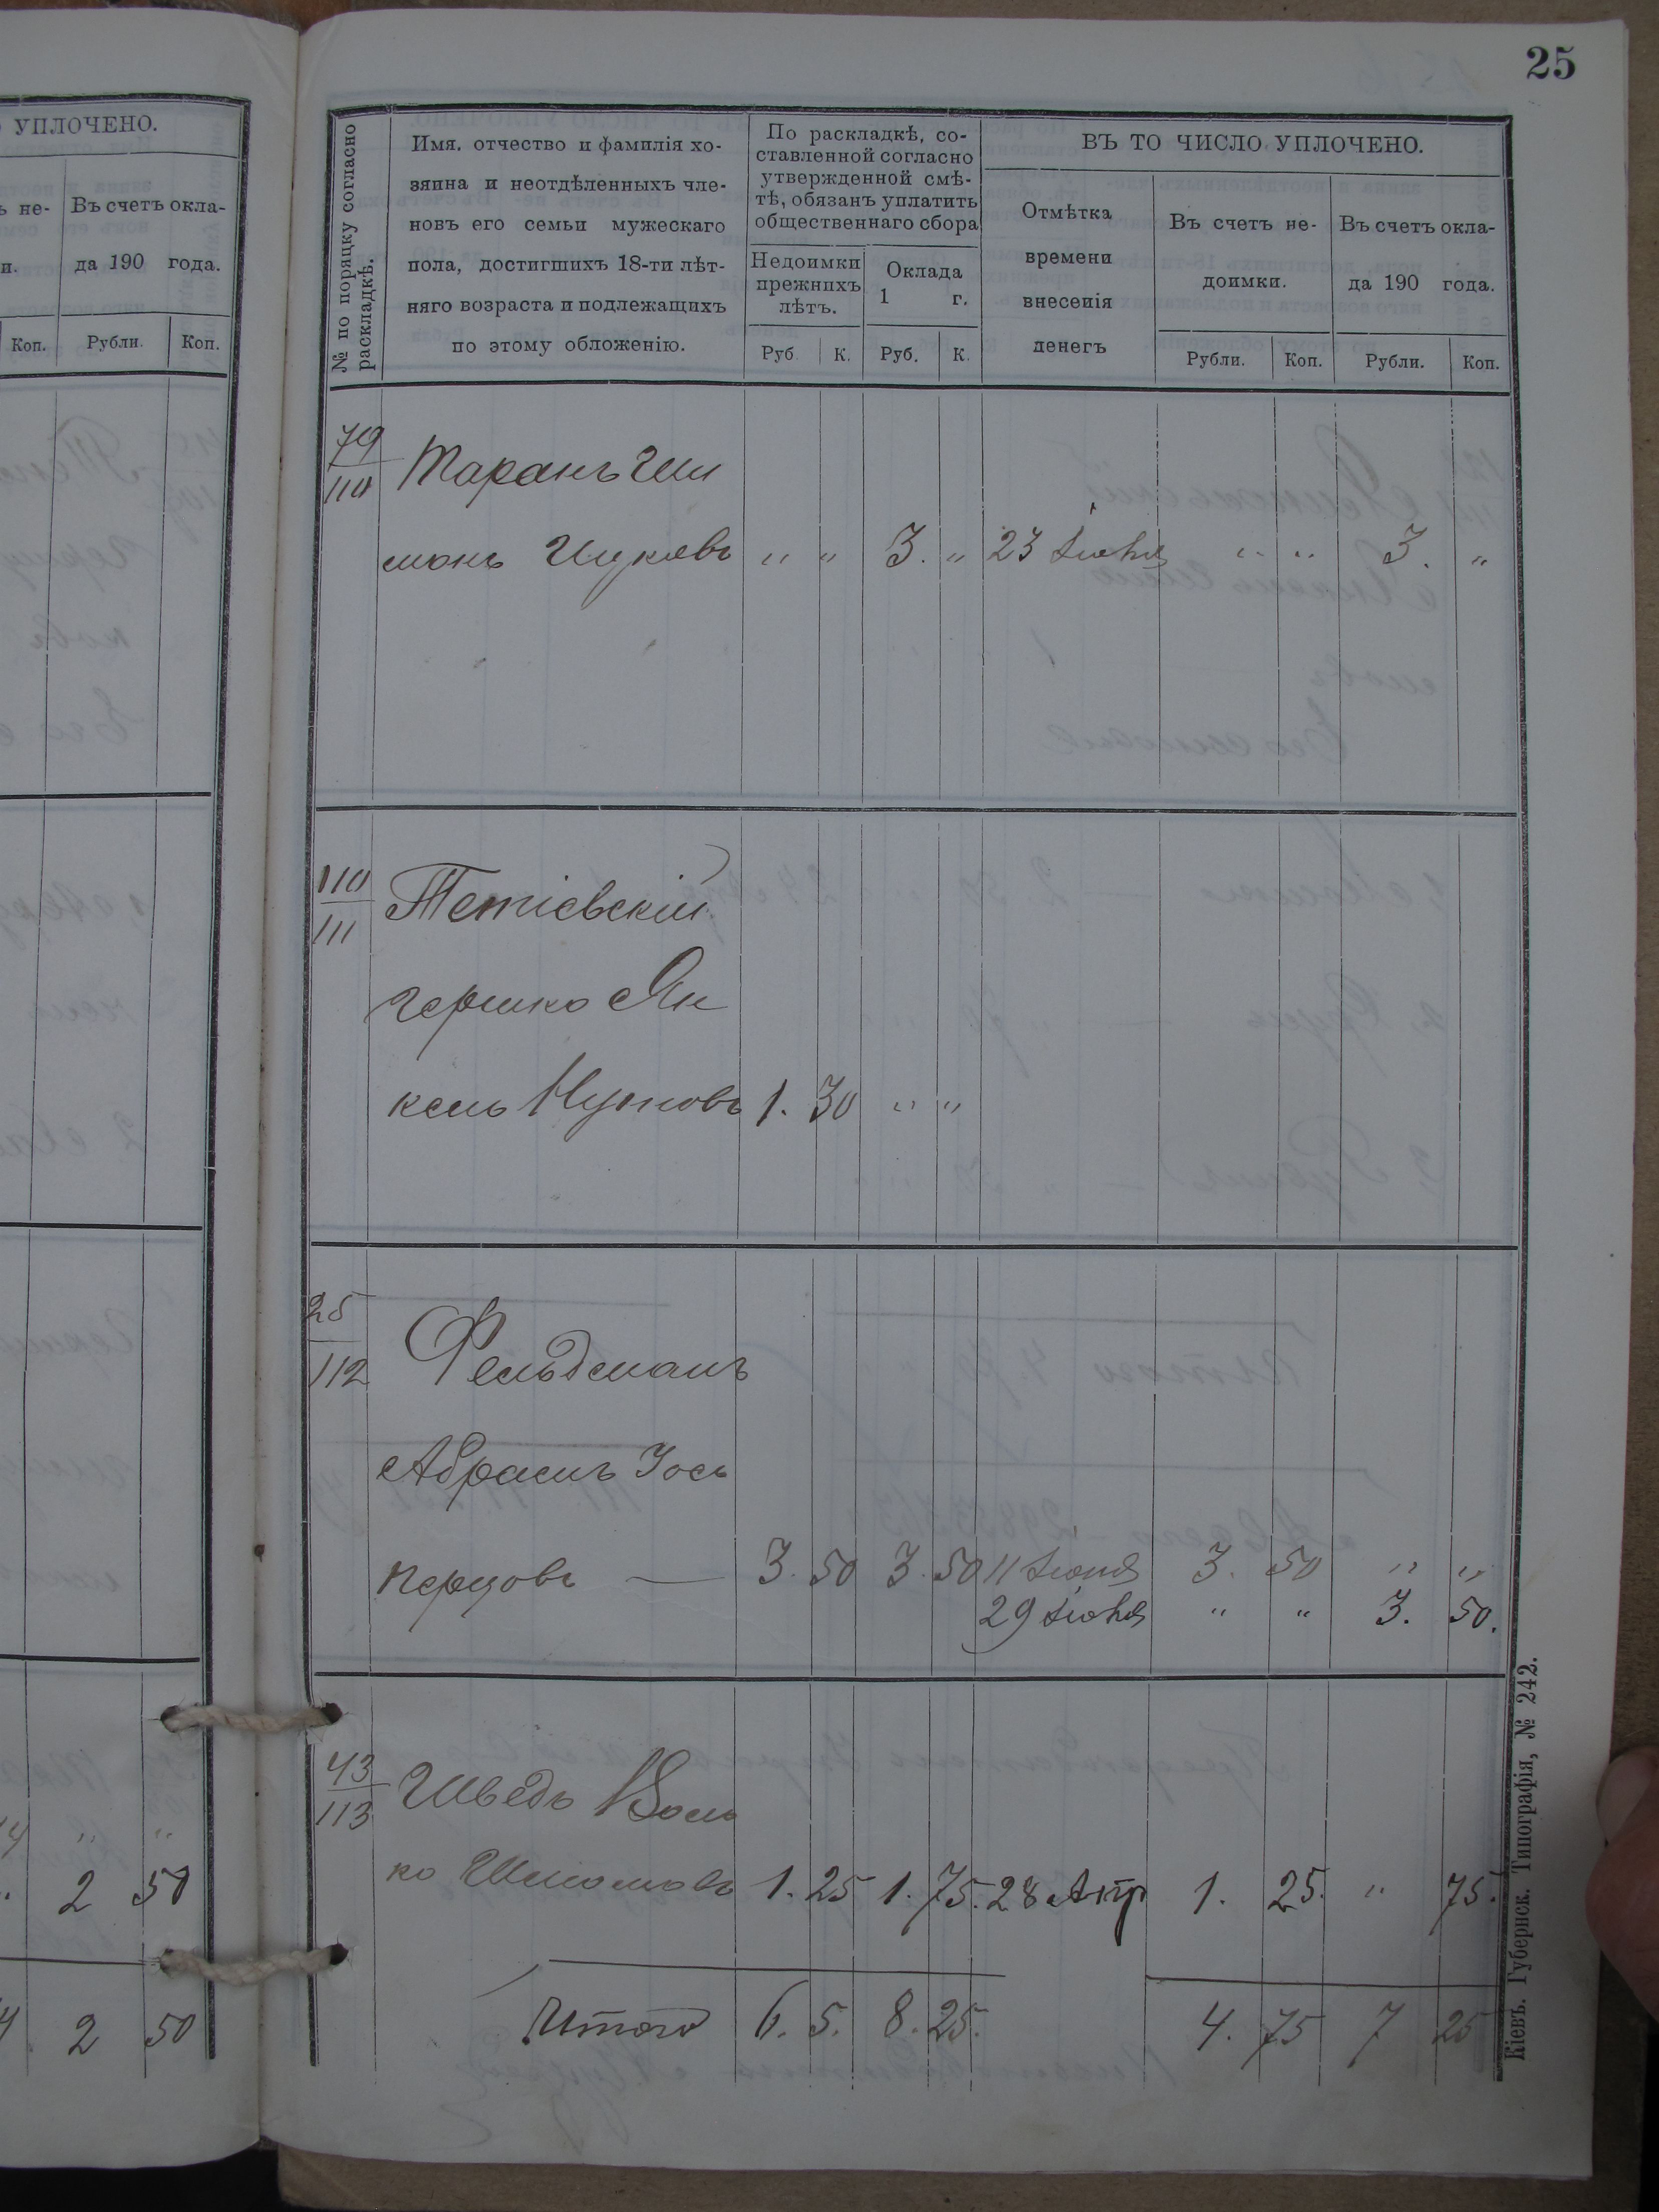 25
УПЛОЧЕНО.
ъ не-
Въ счетъ окла-
и.
да 190 года.
Коп. Рубли. Коп.
№ по порядку согласно раскладкѣ.
Имя, отчество и фамилія хо-
зяина и неотдѣленныхъ чле-
новъ его семьи мужескаго
пола, достигшихъ 18-ти лѣт-
няго возраста и подлежащихъ
по этому обложенію.
По раскладкѣ, со-
ставленной согласно
утвержденной смѣ-
тѣ, обязанъ уплатить
общественнаго сбора
Недоимки
прежнихъ
лѣтъ.
Оклада
1 г.
Руб. К. Руб. К.
ВЪ ТО ЧИСЛО УПЛОЧЕНО.
Отмѣтка
времени
внесенія
денегъ
Въ счетъ не-
доимки.
Рубли. Коп.
Въ счетъ окла-
да 190 года.
Рубли. Коп.
79
110
Таранъ Ши
монъ " " 3. " 23 Іюня " " 3. "
110
111
Тетіевскій
Гершко Ян
кель 1. 30 " "
25
112
Фельдманъ
Абрамъ Іось
Перцовъ — 3. 50 3. 50 11 Іюня 3. 50 " "
29 Іюня " " 3. 50.
43
113
Шведъ Воль
ко 1. 25 1. 75. 28 Апр 1. 25. " 75.
Итого 6. 5. 8. 25. 4. 75 7 25
" "
2 50
2 50
Кіевъ. Губернск. Типографія, № 242.